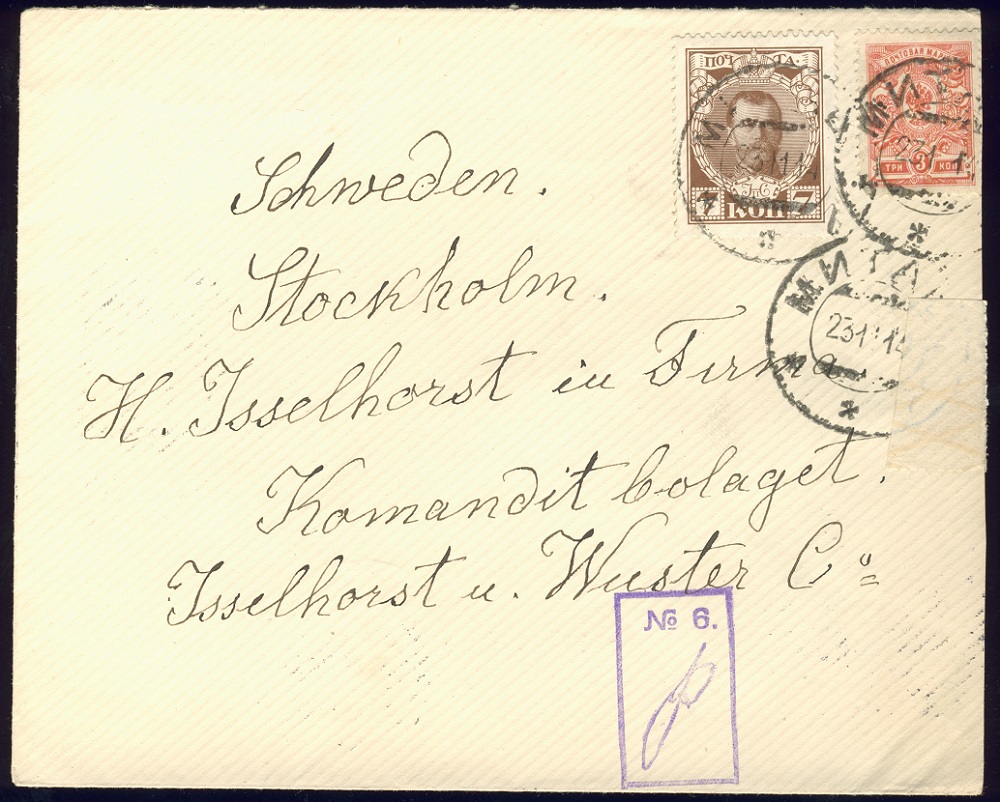 ПОЧ ТА.
7 КОП 7
ПОЧТОВАЯ МАРКА
ТРИ 3 КОП
МИТАВА
23 1 14
Schweden.
Stockholm.
H. Isselhorst in Firma
Komandit bolaget.
Isselhorst u. Wuster Cº
№ 6.